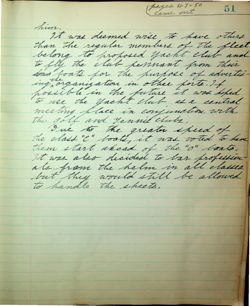 (pages 47-50
came out)
51
him.
It was deemed wise to have others
than the regular members of the fleet
belong to proposed Yacht Club and
to fly the club pennant from their
boats for the purpose of adverti-
sing organization in other ports. If
possible in the future it was hoped
to use the Yacht Club as a central
meeting place in conjunction with
the Golf and Tennis Clubs.
Due to the greater speed of
the class "C" boats, it was voted to have
them start ahead of the "O" boats.
It was also decided to bar profession-
als from the helm in all classes
but they would still be allowed
to handle the sheets.